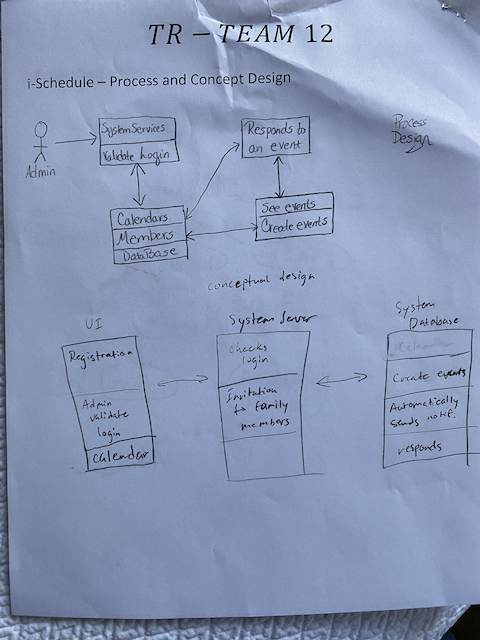 TR – TEAM 12
i-Schedule – Process and Concept Design
System Services
Validate Login
Admin
Responds to
an event
Process
Design
Calendars
Members
DataBase
See events
Create events
conceptual design
UI
Registration
Admin
validate
login
calendar
System Server
checks
login
Invitation
to family
members
System
Database
Create events
Automatically
sends notif.
responds